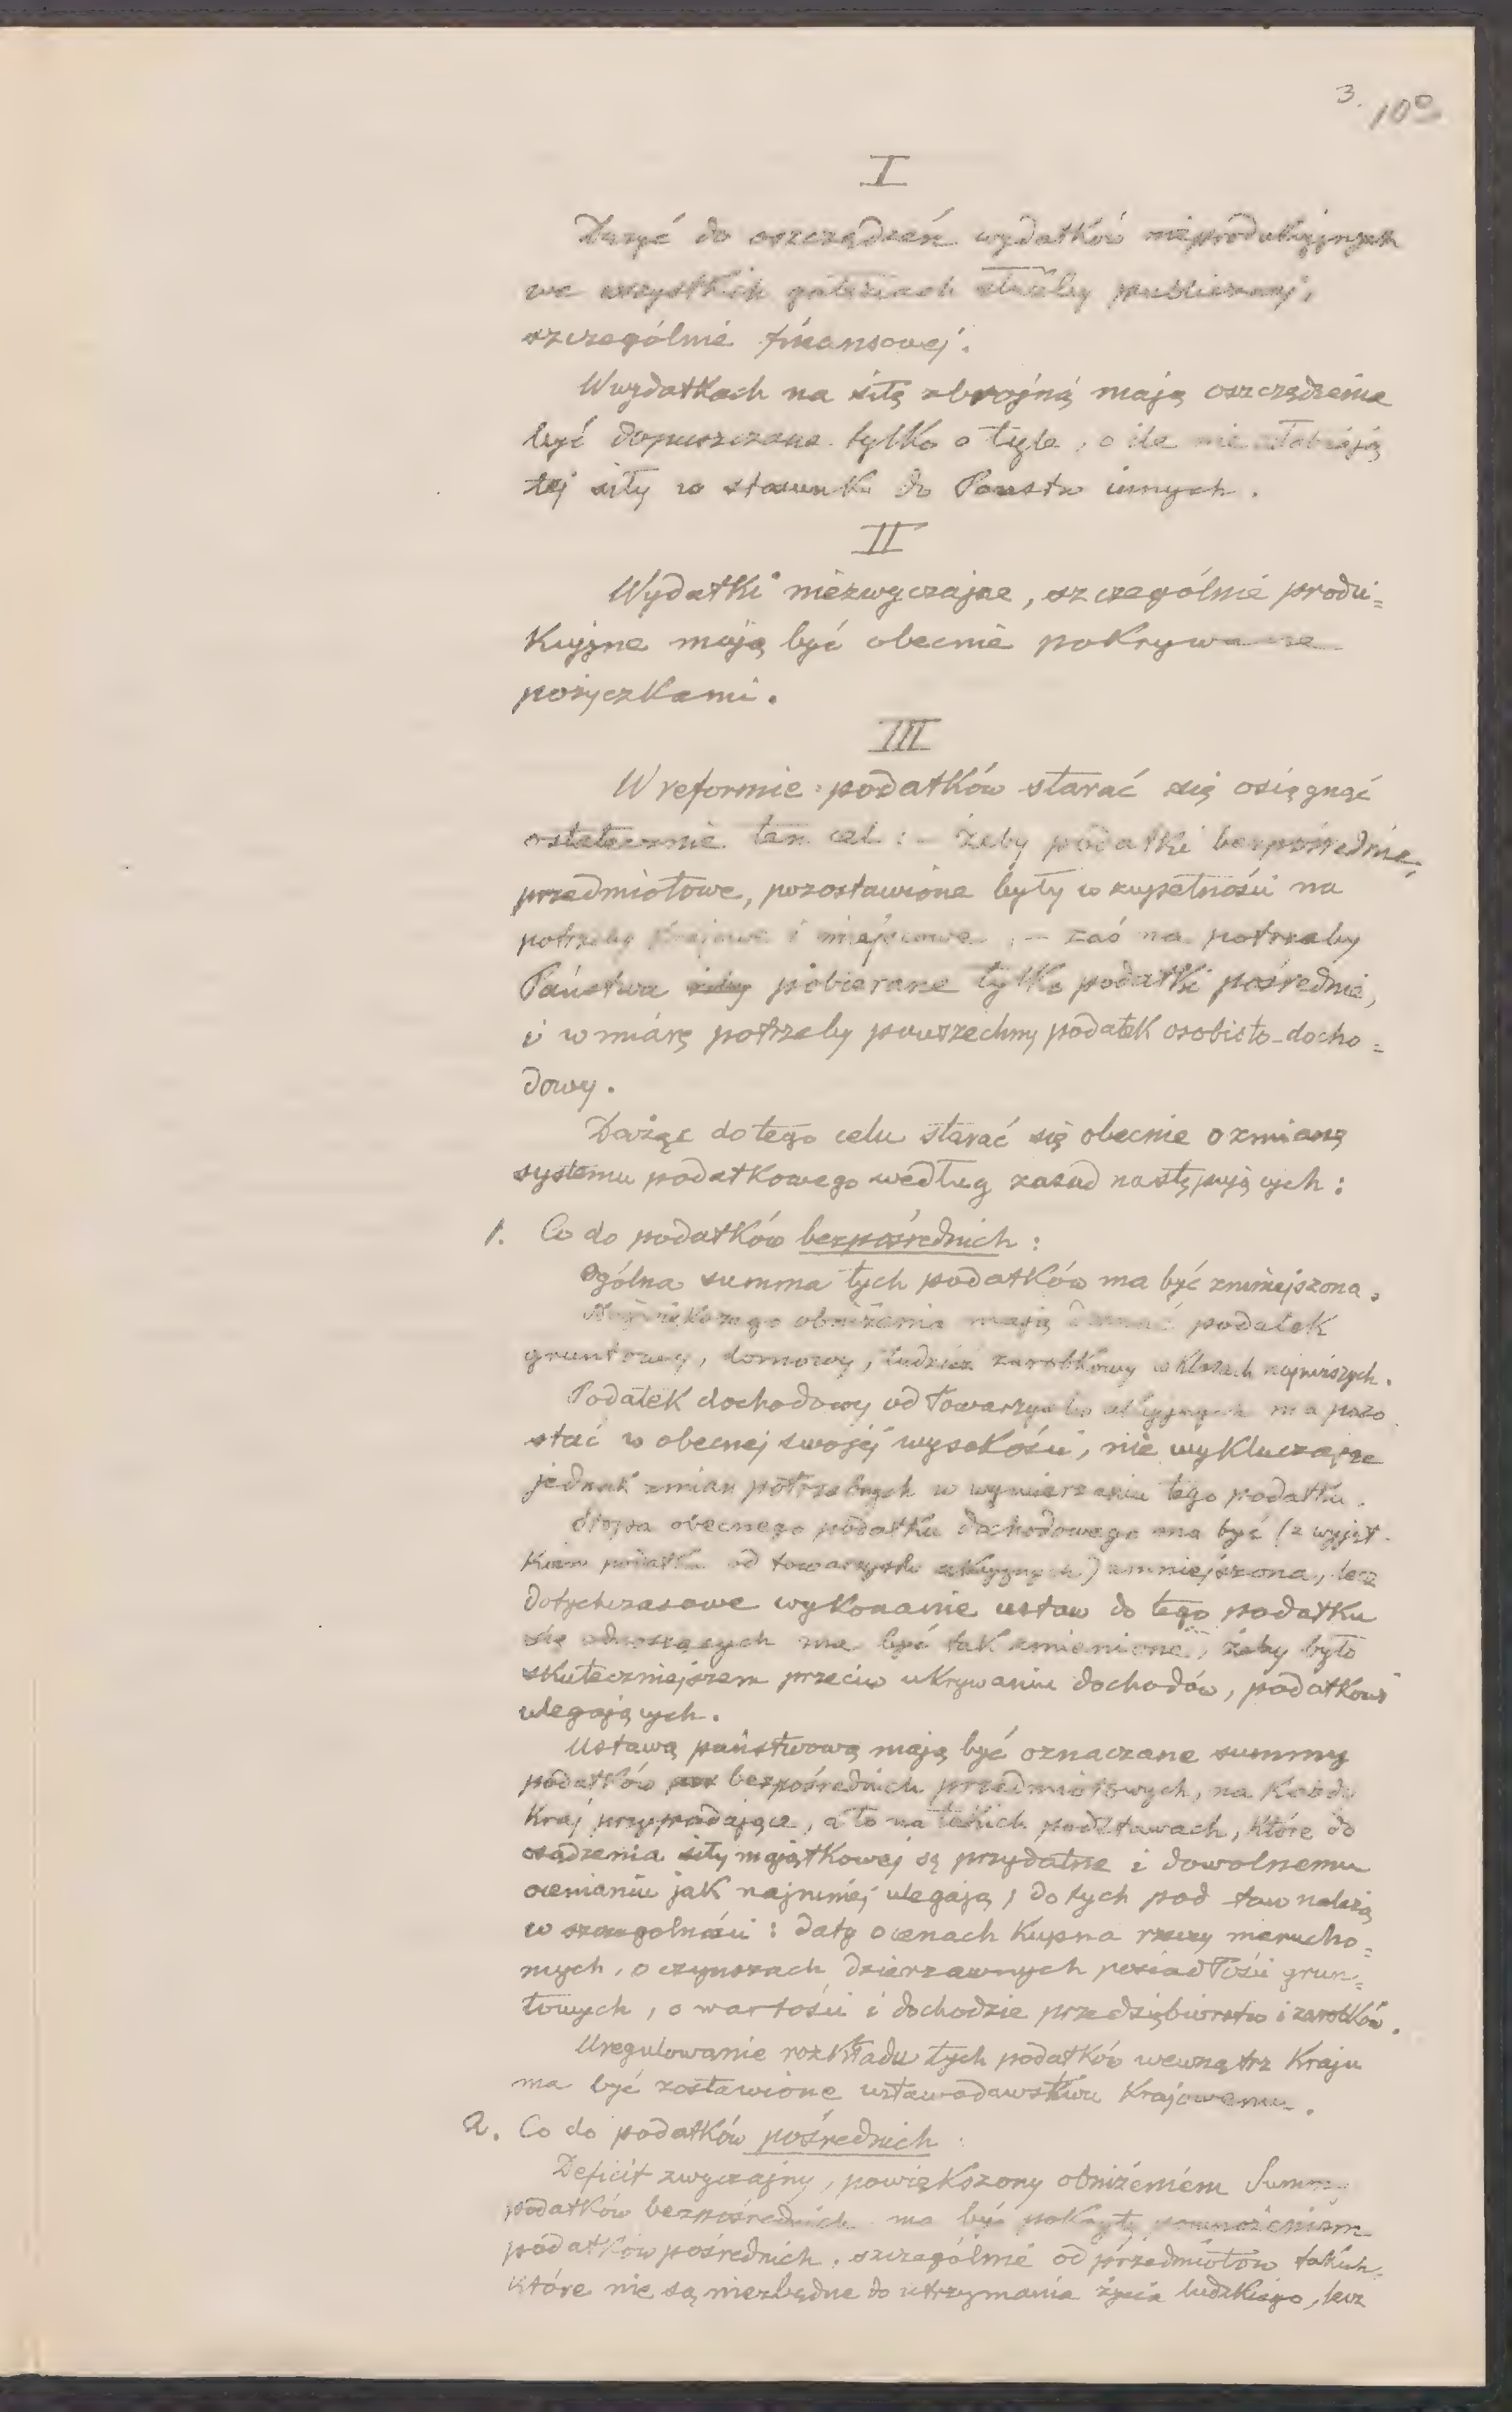 3.
I
Dążyć do oszczędzeń wydatków nieprodukcyjnych
we wszystkich gałęziach służby publicznej,
szczególnie finansowej.
W wydatkach na siłę zbrojną mają oszczędzenia
być dopuszczane tylko o tyle, o ile nie osłabiają
tej siły w stosunku do Państw innych.
II
Wydatki niezwyczajne, szczególnie produ=
kcyjne mają być obecnie pokrywane
pożyczkami.
III
W reformie podatków starać się osięgnąć
ostatecznie ten cel: – żeby podatki bezpośrednie,
przedmiotowe, pozostawione były w zupełności na
potrzeby krajowe i miejscowe, – zaś na potrzeby
Państwa pobierane tylko podatki pośrednie,
i w miarę potrzeby powszechny podatek osobisto-docho=
dowy.
Dążąc do tego celu starać się obecnie o zmianę
systemu podatkowego według zasad następujących:
1. Co do podatków bezpośrednich:
Ogólna summa tych podatków ma być zmniejszona.
Największego obniżenia mają doznać podatek
gruntowy, domowy, tudzież zarobkowy w klasach najniższych.
Podatek dochodowy od towarzystw akcyjnych ma pozo
stać w obecnej swojej wysokości, nie wykluczając
jednak zmian potrzebnych w wymierzaniu tego podatku.
Stopa obecnego podatku dochodowego ma być (z wyjąt-
kiem podatku od towarzystw akcyjnych) zmniejszona, lecz
dotychczasowe wykonanie ustaw do tego podatku
się odnoszących ma być tak zmienione, żeby było
skuteczniejszem przeciw ukrywaniu dochodów, podatkowi
ulegających.
Ustawą państwową mają być oznaczane summy
podatków bezpośrednich przedmiotowych, na każdy
kraj przypadające, a to na takich podstawach, które do
osądzenia siły majątkowej są przydatne i dowolnemu
ocenianiu jak najmniej ulegają; do tych pod taw należą
w szczególności: daty o cenach kupna rzeczy nierucho=
mych, o czynszach dzierżawnych posiadłości grun=
towych, o wartości i dochodzie przedsiębiorstw i zarobków.
Uregulowanie rozkładu tych podatków wewnątrz kraju
ma być zostawione ustawodawstwu krajowemu.
2. Co do podatków pośrednich:
Deficit zwyczajny, powiększony obniżeniem Summy
podatków bezpośrednich ma być pokryty pomnożeniem
podatków pośrednich, szczególnie od przedmiotów takich,
które nie są niezbędne do utrzymania życia ludzkiego, lecz